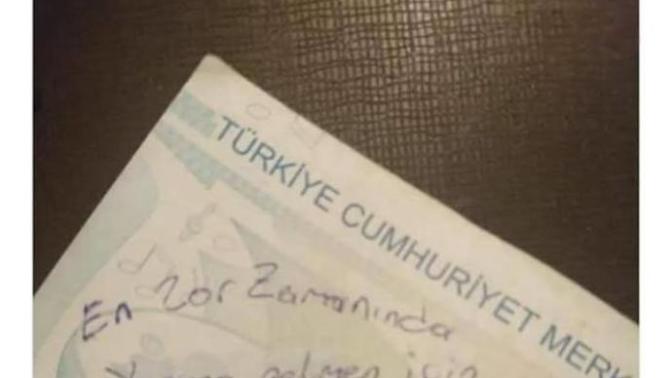 TÜRKİYE CUMHURİYET MERK
En zor Zamanında
için